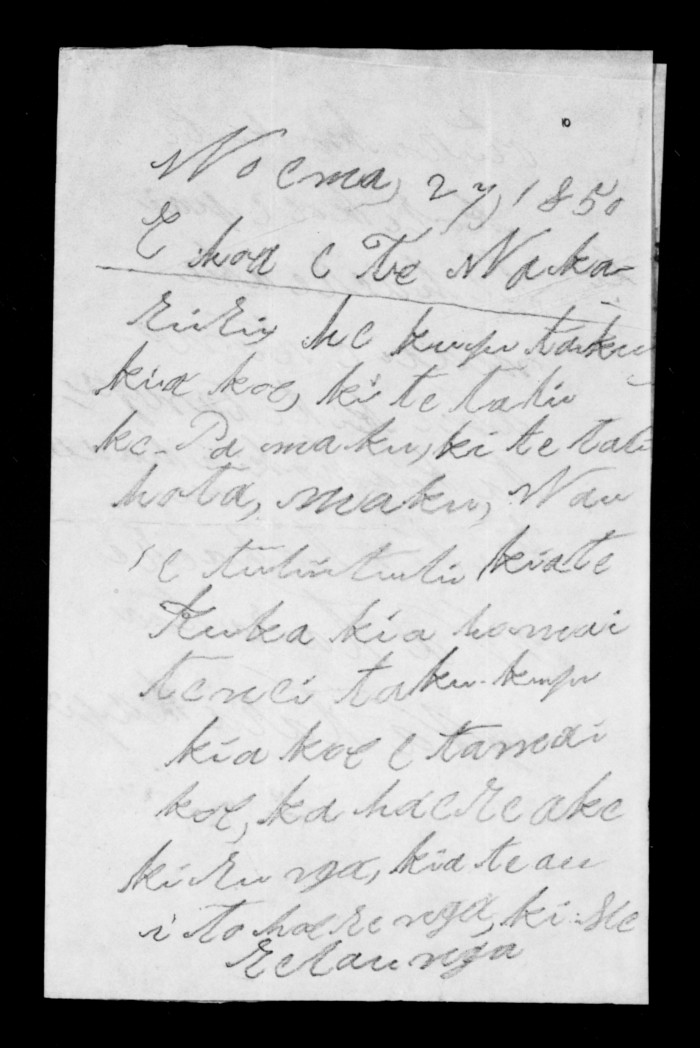 Noema, 27, 1850
E hoa e Te Waka-
ririri, he kupu taku
kia koe, ki te tahi
ke Pa maku, ki te tahi
hota, maku, Nau
tuhituhi kiate
Kuka kia homai
tenei taku kupu
kia koe e tamai
koe, ka haere ake
ki runga, kia te au
i to haerenga, ki